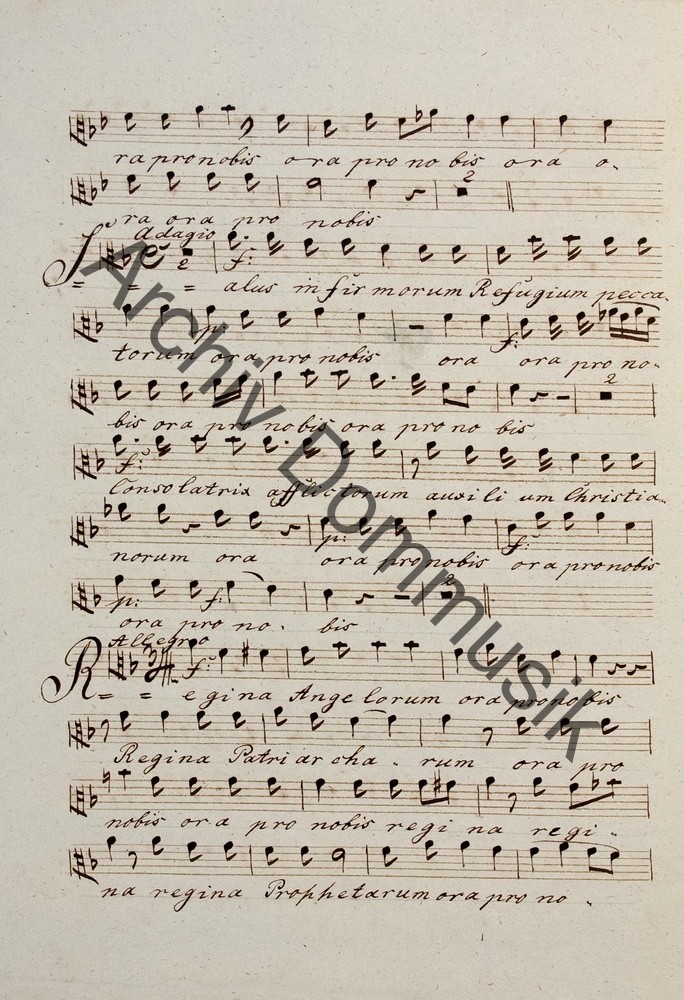 ra pro nobis ora pro no bis ora o-
2
ra ora pro nobis
Adagio
2
f:
S = = = alus in fir morum Refugium pecca-
p f:
torum ora pro nobis ora ora pro no-
2
bis ora pro nobis ora pro no bis
f:
Consolatrix afflictorum auxili um Christia-
p: f:
norum ora ora pro nobis ora pro nobis
p: f: 2
ora pro no - bis
Allegro
f:
R = = egina Angelorum ora pro nobis
Regina Patri ar cha - rum ora pro
nobis ora pro nobis regi na regi -
na regina Prophetarum ora pro no -
Archiv Dommusik